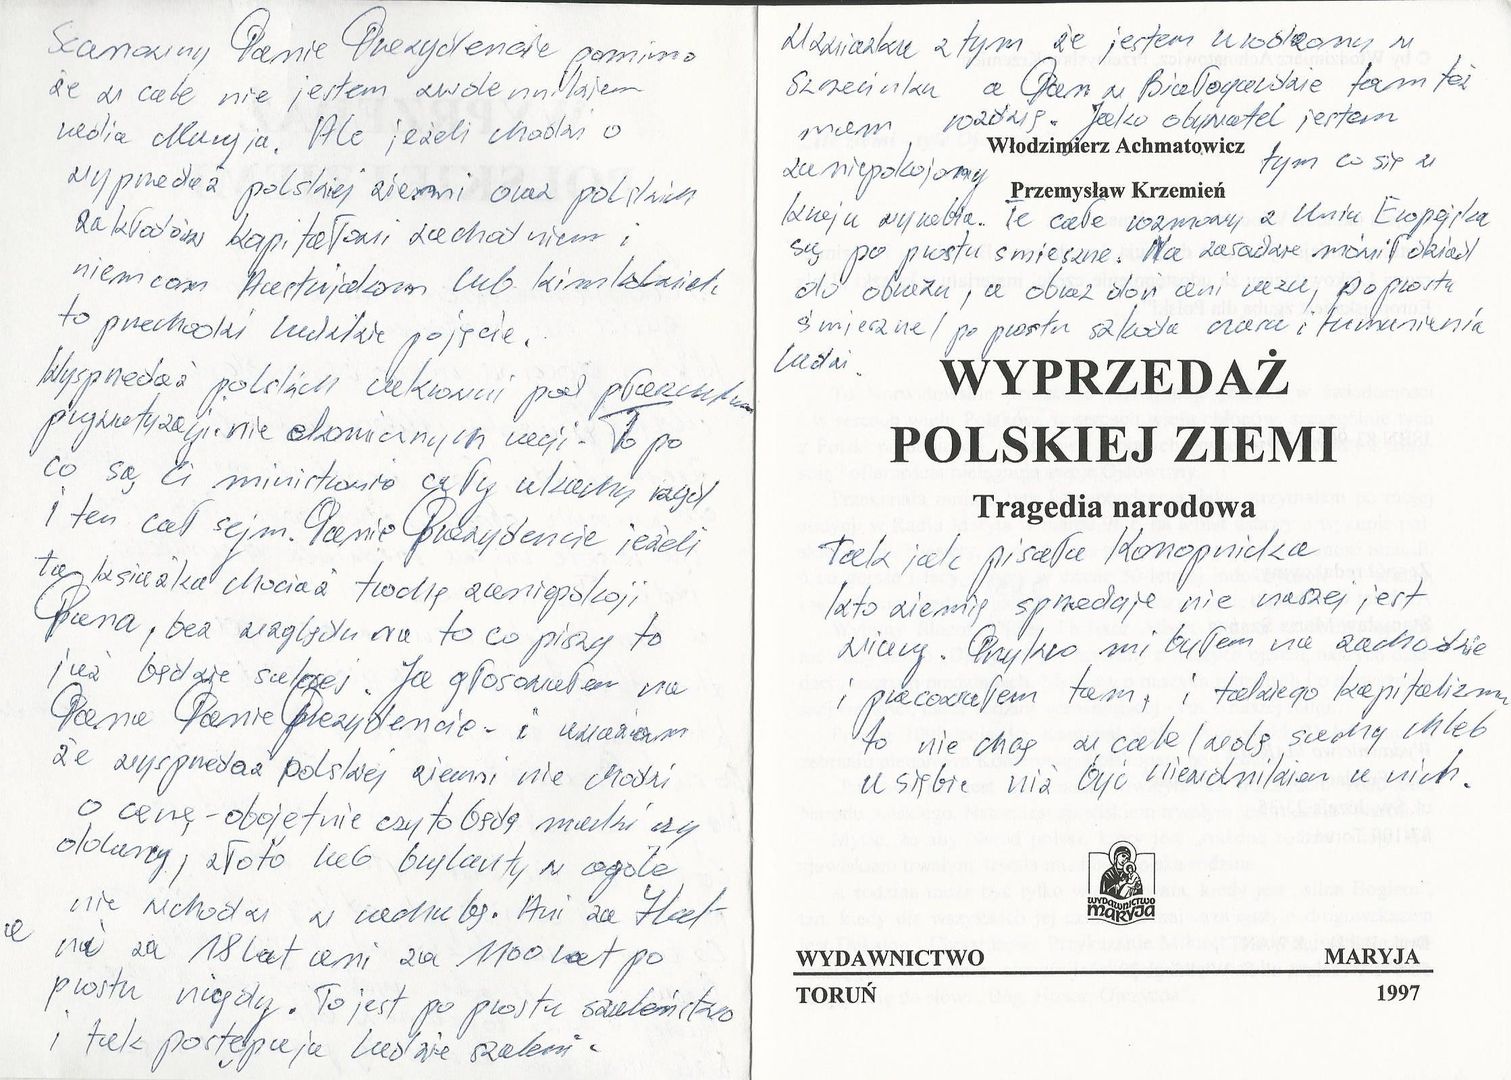 Szanowny Panie Prezydencie pomimo
że w cale nie jestem zwolennikiem
radia Maryja. Ale jeżeli chodzi o
wyprzedaż polskiej ziemi oraz polskich
zakładów kapitałowi zachodniem i
niemcom Austriakom lub
to przechodzi ludzkie pojęcie.
Wysprzedaż polskich cukrowni pod płaszczykiem
prywatyzacji nie ekonicznych racji. To po
co są Ci ministrowie cały ukochany rząd
i ten cał sejm. Panie Prezydencie jeżeli
ta książka chociaż trochę zaniepokoji
Pana, bez względu na to co piszę to
już będzie sukcej. Ja głosowałem na
Pana Panie Prezydencie - i uważam
że wysprzedaż polskiej ziemi nie chodzi
o cenę - obojętnie czy to będą marki czy
dolary, złoto lub brylanty w ogóle
nie wchodzi w rachubę. Ani za 7 lat
a ni za 18 lat ani za 1100 lat po
prostu nigdy. To jest po prostu szaleństwo
i tak postępują ludzie szaleni.
W związku z tym że jestem urodzony w
Szczecinku a Pan w Białogardzie tam też
mam rodzinę. Jako obywatel jestem
Włodzimierz Achmatowicz
zaniepokojony tym co się w
Przemysław Krzemień
kraju wyrabia. Te całe rozmowy z Unią Europejską
są po prostu śmieszne. Na zasadzie mówił dziad
do obrazu, a obraz doń ani razu, po prostu
śmieszne/ po prostu szkoda czasu i tumanienia
ludzi.
WYPRZEDAŻ
POLSKIEJ ZIEMI
Tragedia narodowa
Tak jak pisała Konopnicka
kto ziemię sprzedaje nie naszej jest
wiary. Przykro mi byłem na zachodzie
i pracowałem tam, i takiego kapitalizmu
to nie chcę w cale/ wolę suchy chleb
u siebie niż być niewolnikiem u nich.
WYDAWNICTWO
MARYJA
WYDAWNICTWO MARYJA
TORUŃ 1997